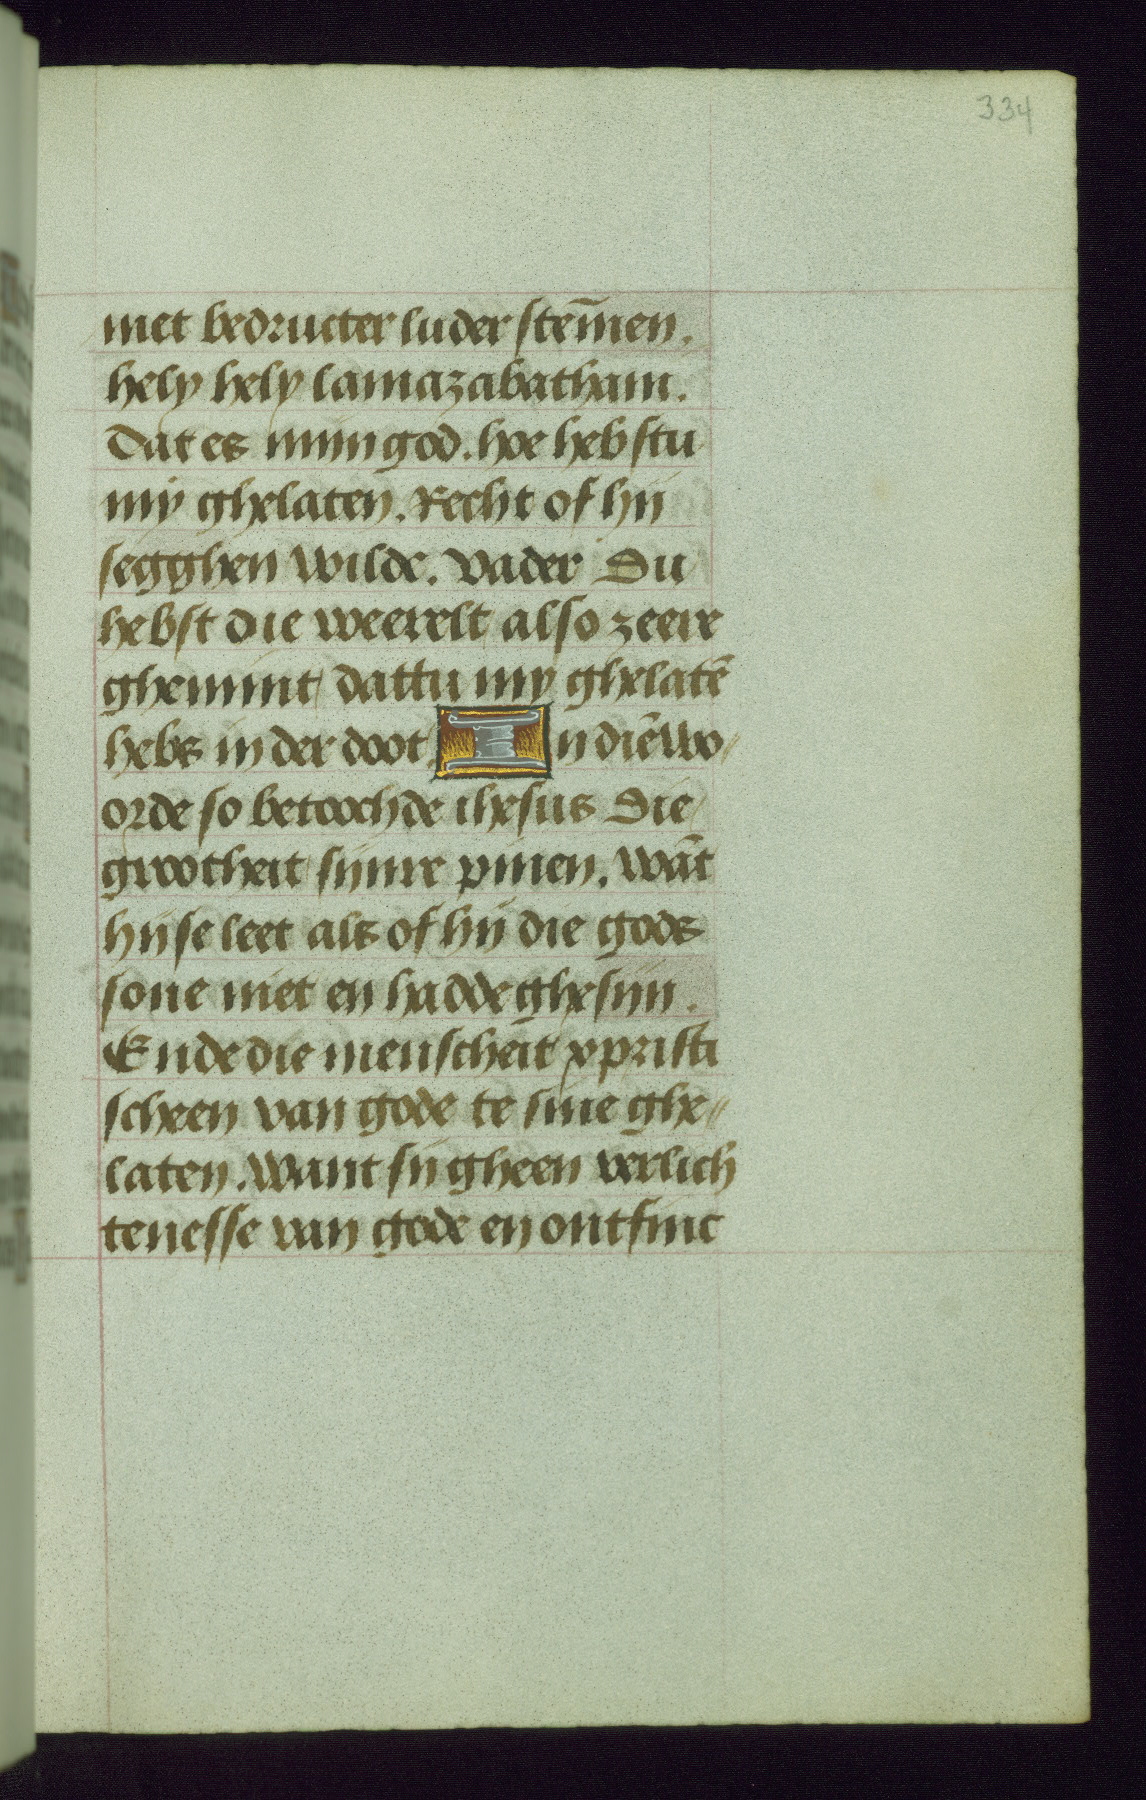 334
met bedructer luder stēmen.
hely hely lamazabatham.
Dat es mijn god. hoe hebstu
mij ghelaten. Recht of hij
segghen wilde. vader Du
hebst die weerelt also zeere
ghemint dattu my ghelatē
hebs in der doot. In diēwo/
orde so betoochde ihesus Die
grootheit sijnre pinen. wāt
hijse leet als of hij die gods
sone niet en hadde ghesijn.
Ende die menscheit xpristi
scheen van gode te sine ghe//
laten. want sij gheen verlich
tenesse van gode en ontfinc